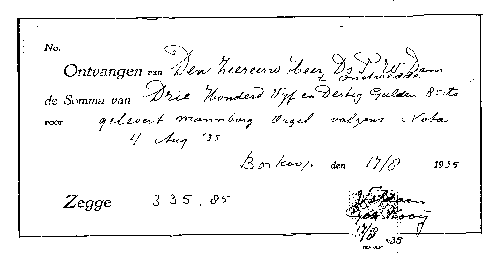 No.
Ontvangen van Den Zeereerw Heer Ds P. W. Dam
de Somma van Drie Honderd Vijf en Dertig Gulden 85 cts
voor gelevert mannborg Orgel volgens Nota
4 Aug '35
Boskoop den 17/8 1935
Zegge 335.85
Voldaan
17/8 '35